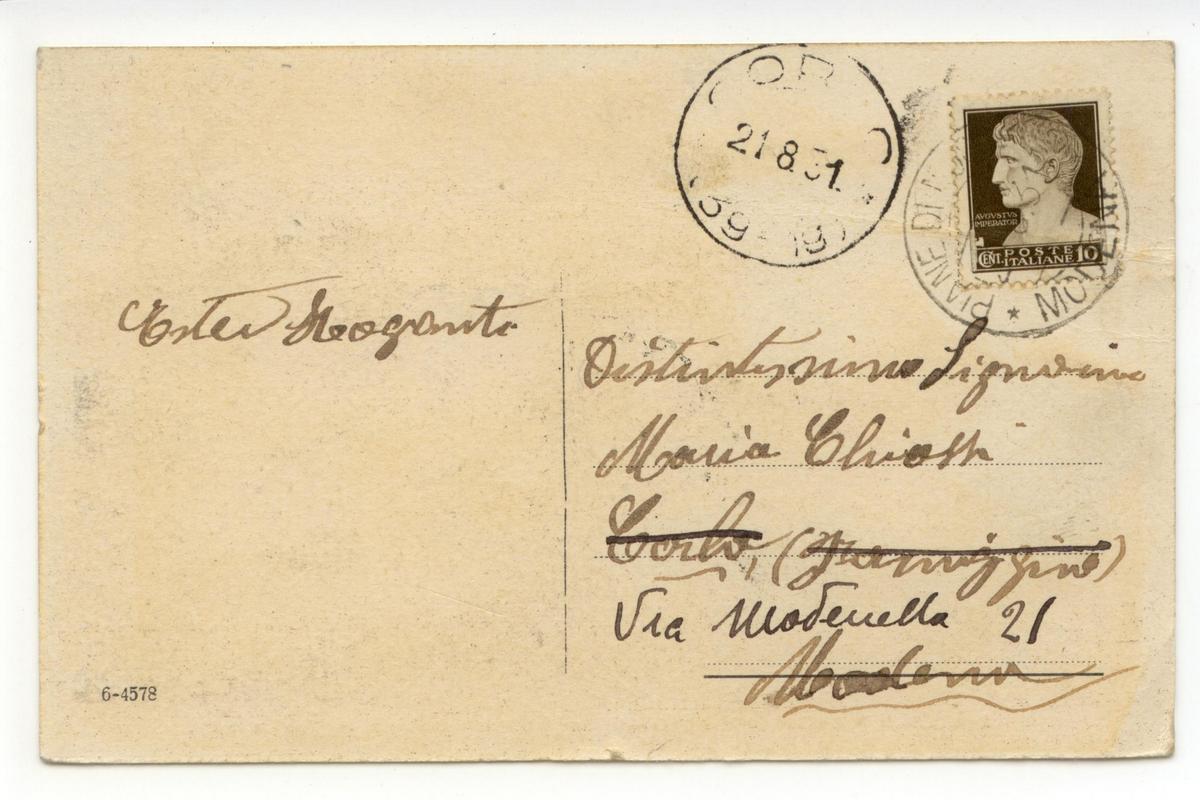 21.8.31.
39-19
AVGVSTVS
IMPERATOR
CENT. POSTE ITALIANE 10
PIANE DI
MODENA
Ester
Distintissima Signorina
Maria Chiossi
Corlo, (Formiggine)
Via Modenella 21
Modena
6-4578